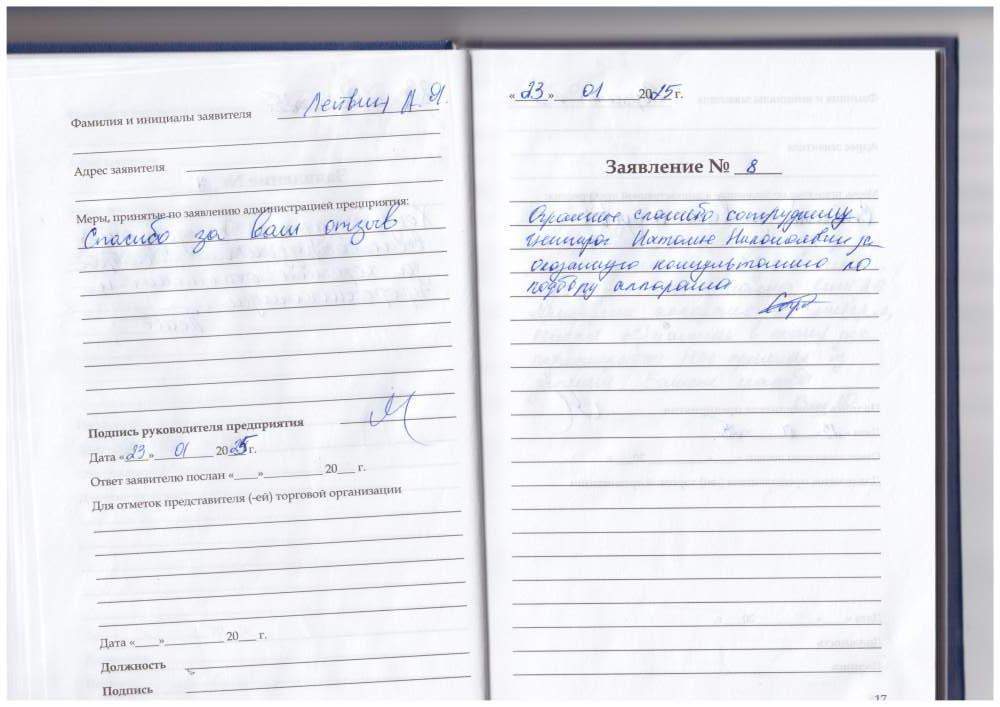 Фамилия и инициалы заявителя Лейвин А. Я.
Адрес заявителя
Меры, принятые по заявлению администрацией предприятия:
Спасибо за ваш отзыв
Подпись руководителя предприятия
Дата «23» 01 2025 г.
Ответ заявителю послан «____»__________ 20___ г.
Для отметок представителя (-ей) торговой организации
Дата «____»__________ 20___ г.
Должность
Подпись
«23» 01 2025 г.
Заявление № 8
Огромное спасибо сотруднику
Наталье Николаевне за
оказанную консультацию по
подбору аппарата
17